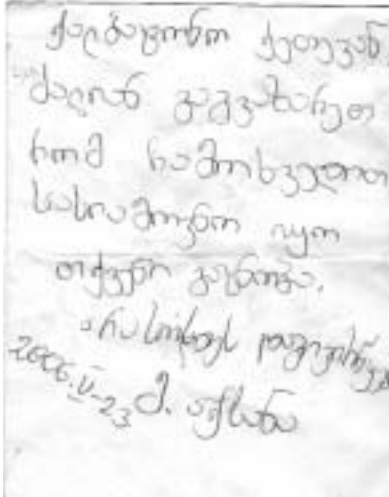 ქალბატონო ქეთევან
ძალიან გაგვახარეთ
რომ ჩამოხვედით
სასიამოვნო იყო
თქვენი გაცნობა.
არასოდეს დაგივიწყებთ
2006.V-23 მ. ოქსანა